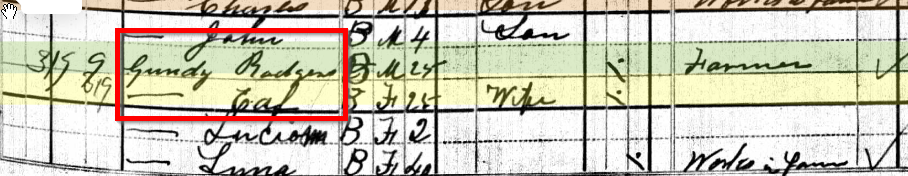 Charles B M Son Works on farm
— John B M 4 Son
319 9 Gundy Rodgers B M 25 Farmer
319 — B F 25 Wife
— B F 2
— Luna B F 40 Works on farm